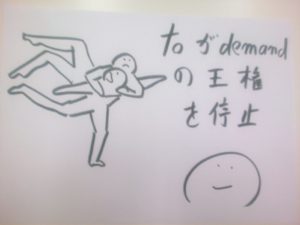 toがdemand
の王権
を停止